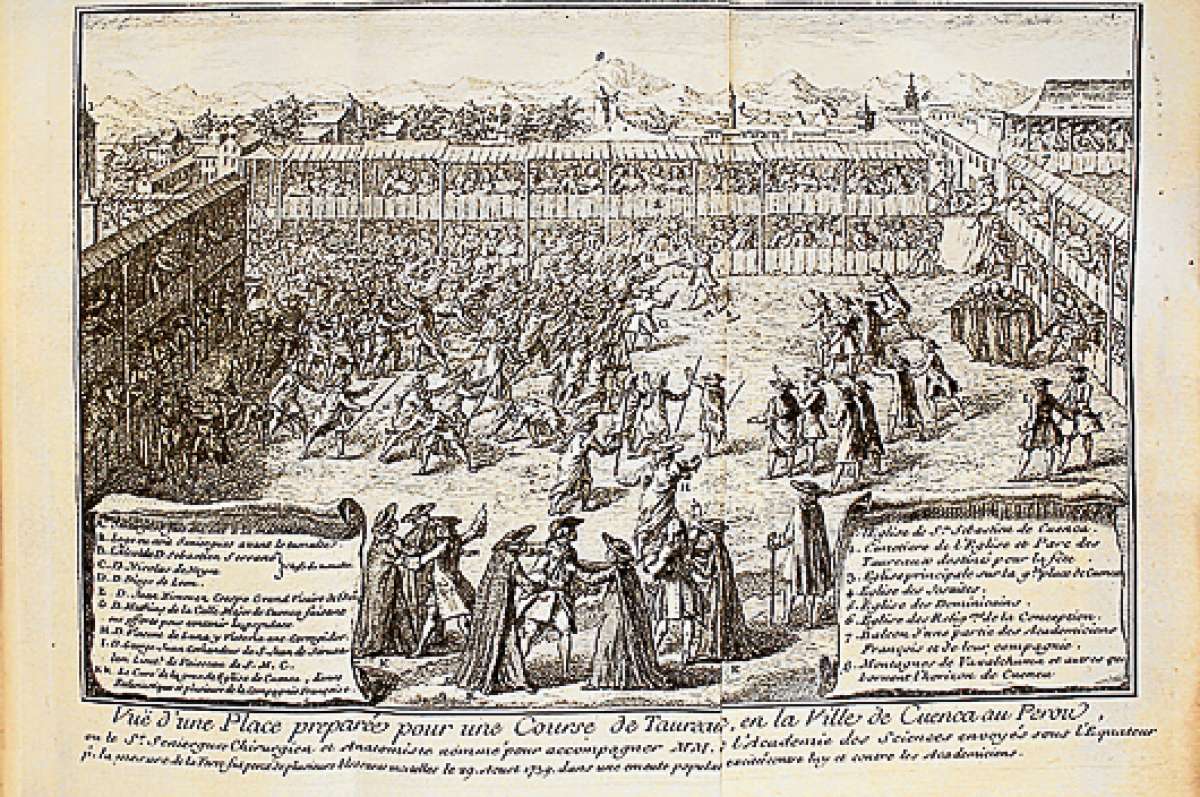 Seniergues avant le tumulte
D. Sebastien Serrano
C. D. Nicolas de Neyra
D. D. Diego de Leon
E. D. Juan Ximenez Crespo Grand Vicaire de
G. D. Mathias de la Calle, Major de Cuenca faisant
ses efforts pour contenir la populace
H. D. Vincent de Luna y Victoria
I. D. George Juan Comandeur de S. Juan de
Lieut. de Vaisseau de S. M. C.
KK. Le Curé de la grande Eglise de Cuenca,
Ecclesiastique et plusieurs de la Compagnie Françoise
1. Eglise de St. Sebastien de Cuenca
2. Cimetiere de l'Eglise et Parc des
Taureaux destinés pour la fête
3. Eglise principale sur la gde place de Cuenca
4. Eglise des Jesuites.
5. Eglise des Dominicains.
6. Eglise des Relig.ses de la Conception.
7. Balcon d'une partie des Academiciens
François et de leur compagnie.
8. Montagnes de et autres qui
bornent l'horizon de Cuenca
K K
Vuë d'une Place preparée pour une Course de Taureaux, en la Ville de Cuenca au Perou,
en le Sr. Seniergues Chirurgien et Anatomiste nommé pour accompagner MM. de l'Academie des Sciences envoyés sous l'Equateur
pr. la mesure de la Terre, fut percé de plusieurs blessures mortelles le 29. Aoust 1739. dans une emeute populaire excitée contre luy et contre les Academiciens.